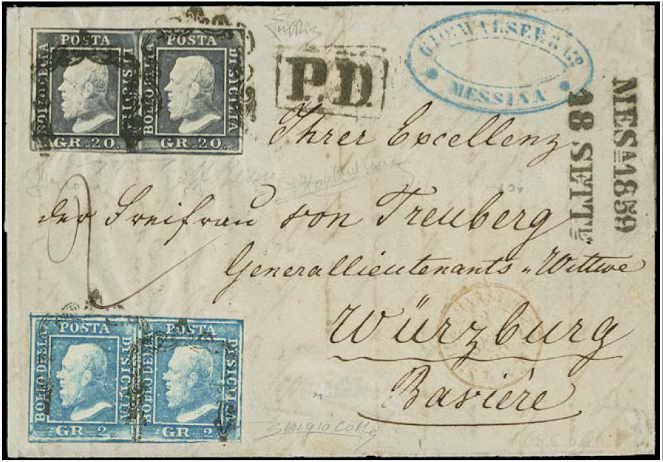 POSTA POSTA
BOLLO DELLA DI SICILIA BOLLO DELLA DI SICILIA
GR. 20. GR. 20.
P.D.
MESSINA
MESA 1859
18 SETTE
Ihrer Excellenz
der Freifrau von Treuberg
Generallieutenants Wittwe
Würzburg
Bavière
2
POSTA POSTA
BOLLO DELLA DI SICILIA BOLLO DELLA DI SICILIA
GR. 2. GR. 2.